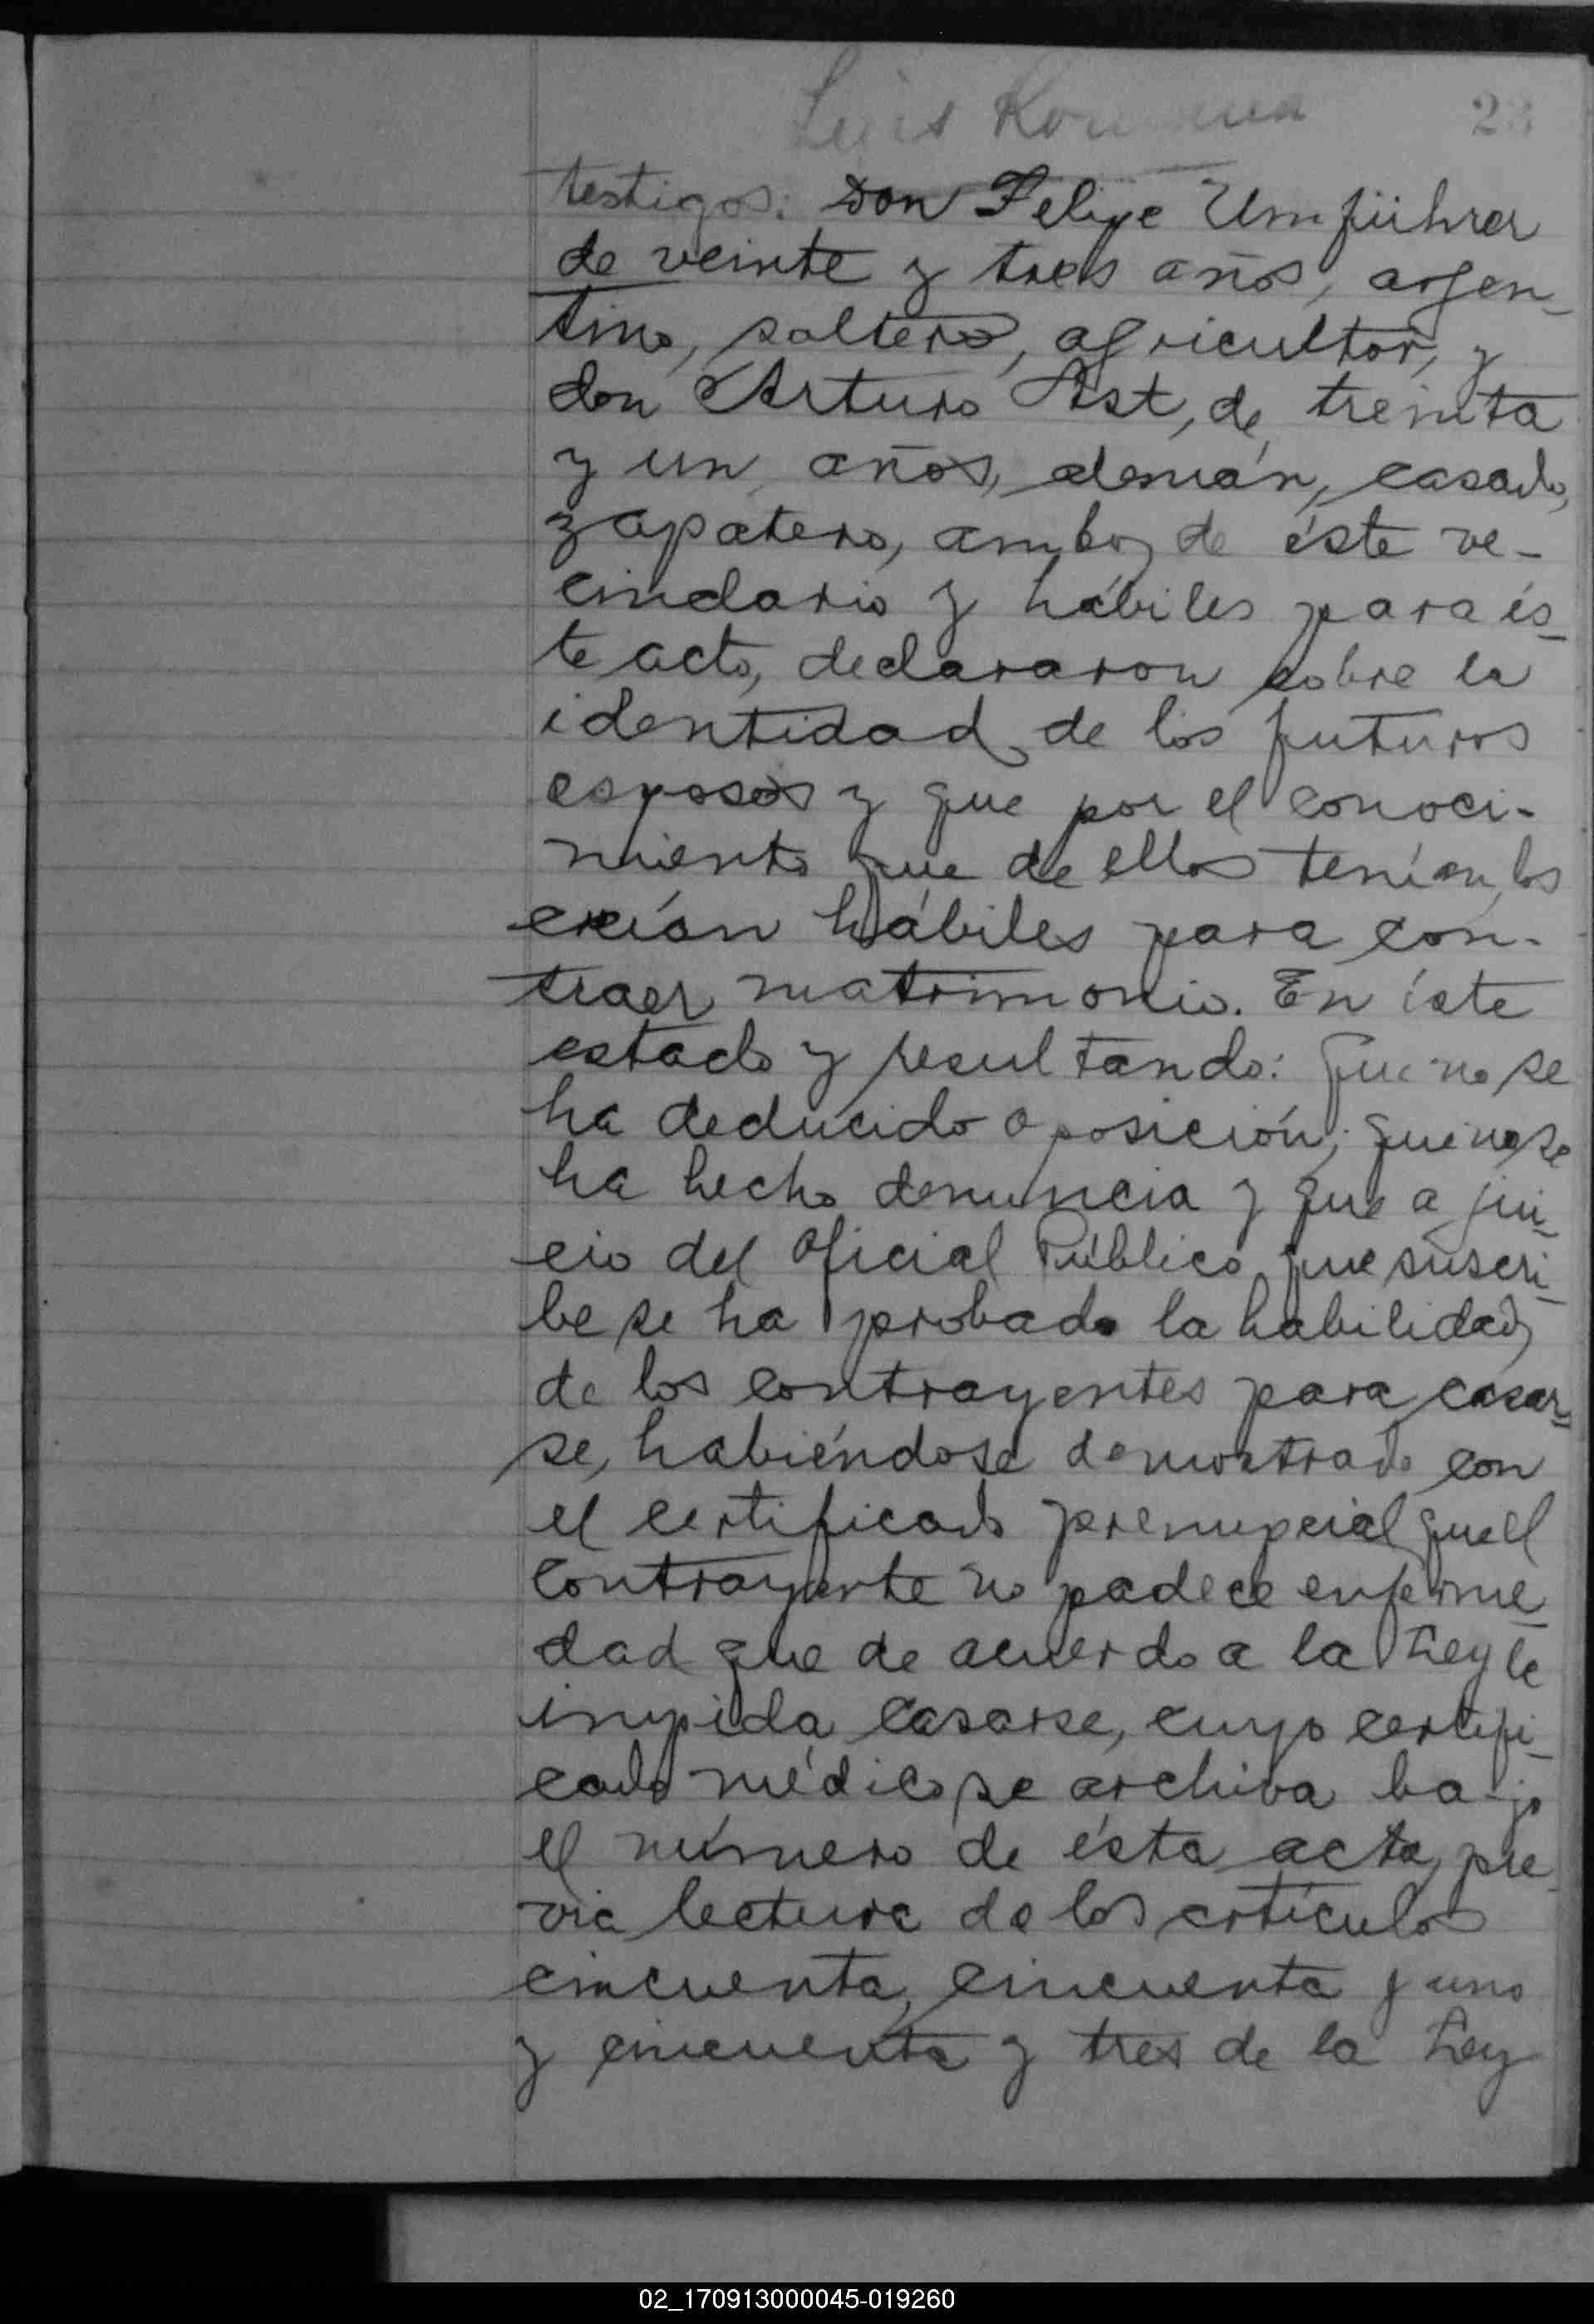 Luis
23
testigos: Don Felipe Umführer
de veinte y tres años, argen-
tino, soltero, agricultor, y
don Arturo Ast, de treinta
y un años, alemán, casado,
zapatero, ambos de éste ve-
cindario y hábiles para és-
te acto, declararon sobre la
identidad de los futuros
esposos y que por el conoci-
miento que de ellos tenían, los
creían hábiles para con-
traer matrimonio. En éste
estado y resultando: Que no se
ha deducido oposición; que no se
ha hecho denuncia y que a jui-
cio del Oficial Público que suscri-
be se ha probado la habilidad
de los contrayentes para casar-
se, habiéndose demostrado con
el certificado prenupcial que el
contrayente no padece enferme-
dad que de acuerdo a la Ley le
impida casarse, cuyo certifi-
cado médico se archiva bajo
el número de ésta acta, pre-
via lectura de los artículos
cincuenta, cincuenta y uno
y cincuenta y tres de la Ley
02_170913000045-019260